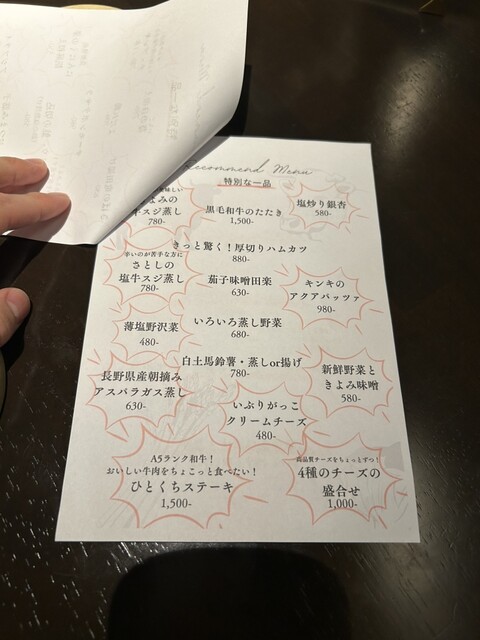 Recommend Menu
特別な一品
美味しい
よみの
牛スジ蒸し
780-
黒毛和牛のたたき
1,500-
塩炒り銀杏
580-
きっと驚く！厚切りハムカツ
880-
辛いのが苦手な方に
さとしの
塩牛スジ蒸し
780-
茄子味噌田楽
630-
キンキの
アクアパッツァ
980-
薄塩野沢菜
480-
いろいろ蒸し野菜
680-
白土馬鈴薯・蒸しor揚げ
780-
長野県産朝摘み
アスパラガス蒸し
630-
新鮮野菜と
きよみ味噌
580-
いぶりがっこ
クリームチーズ
480-
A5ランク和牛！
おいしい牛肉をちょこっと食べたい！
ひとくちステーキ
1,500-
高品質チーズをちょっとずつ！
4種のチーズの
盛合せ
1,000-